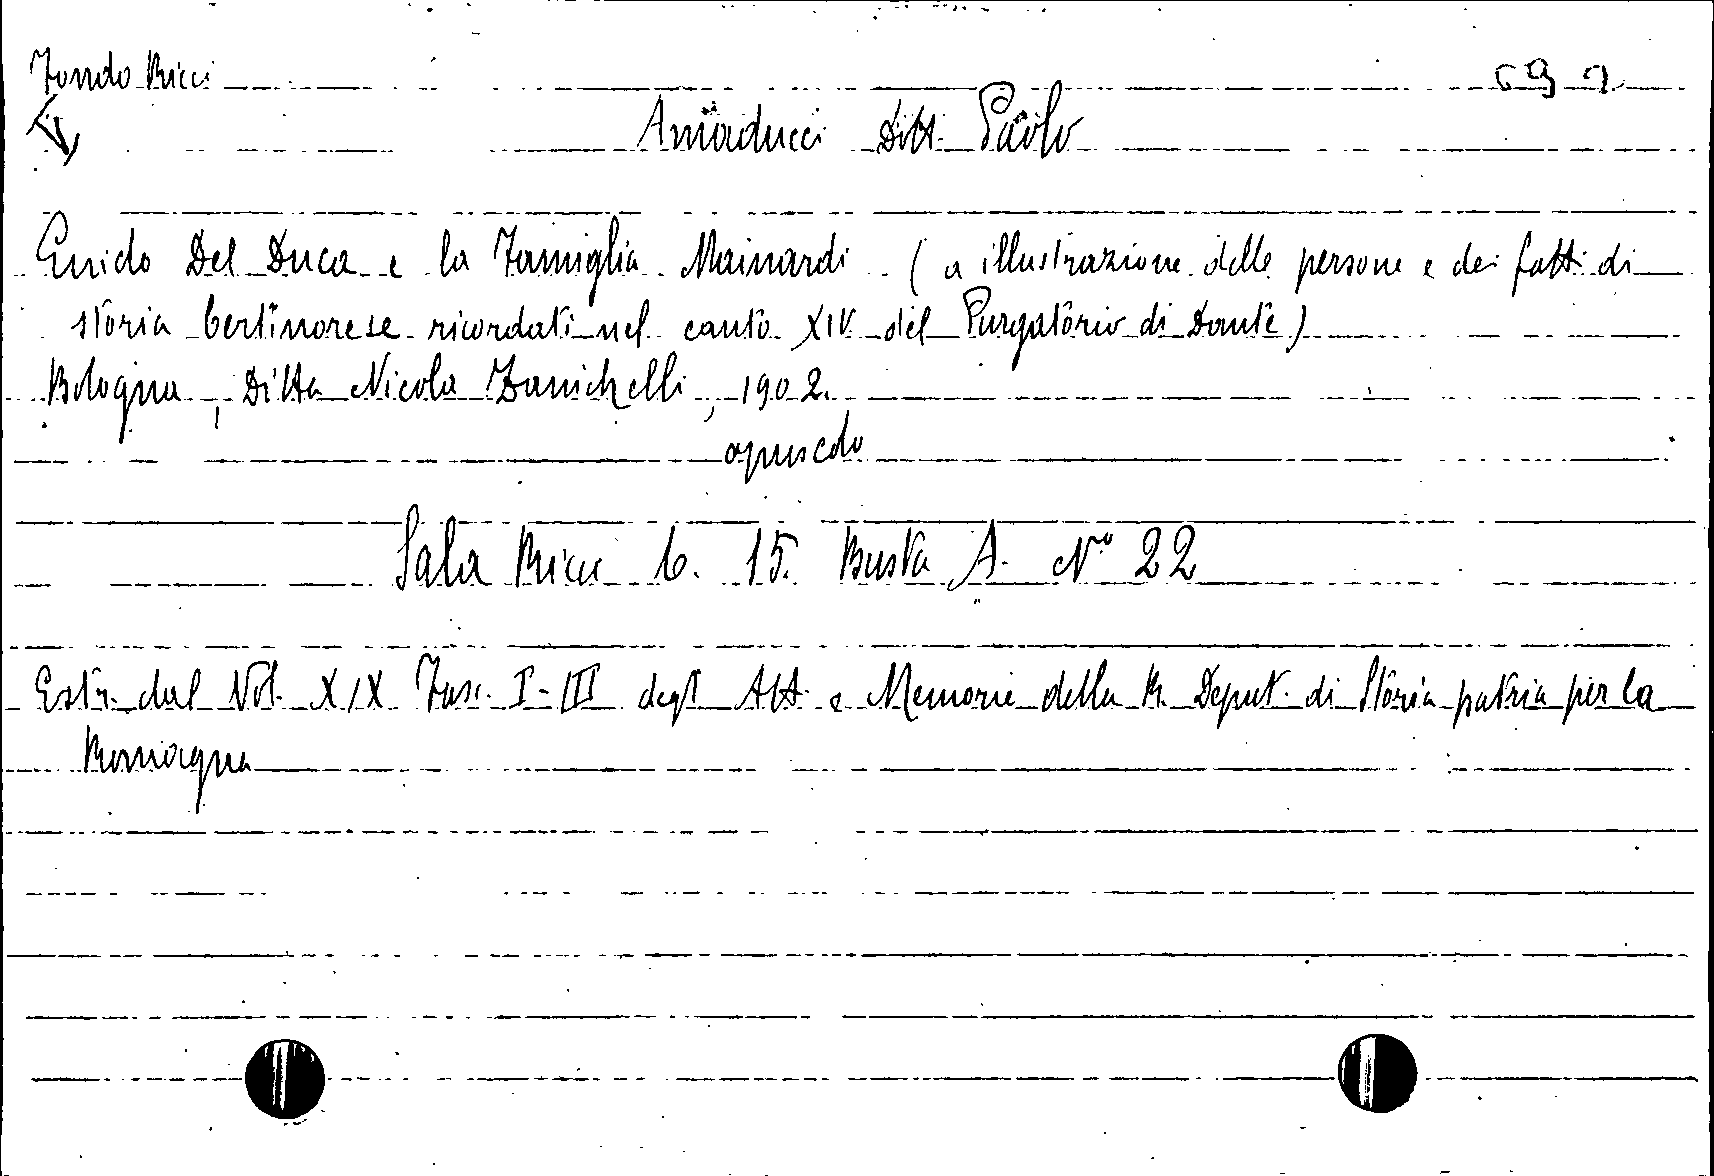 Fondo Ricci
Amaducci Dott. Paolo
Guido Del Duca e la Famiglia Mainardi (a illustrazione delle persone e dei fatti di
storia bertinorese ricordati nel canto XIV del Purgatorio di Dante)
Bologna, Ditta Nicola Zanichelli, 1902.
opuscolo
Sala Ricci 6. 15. Busta A. N° 22
Estr. dal Vol. XIX Fasc. I-III degli Atti e Memorie della R. Deput. di Storia patria per la
Romagna